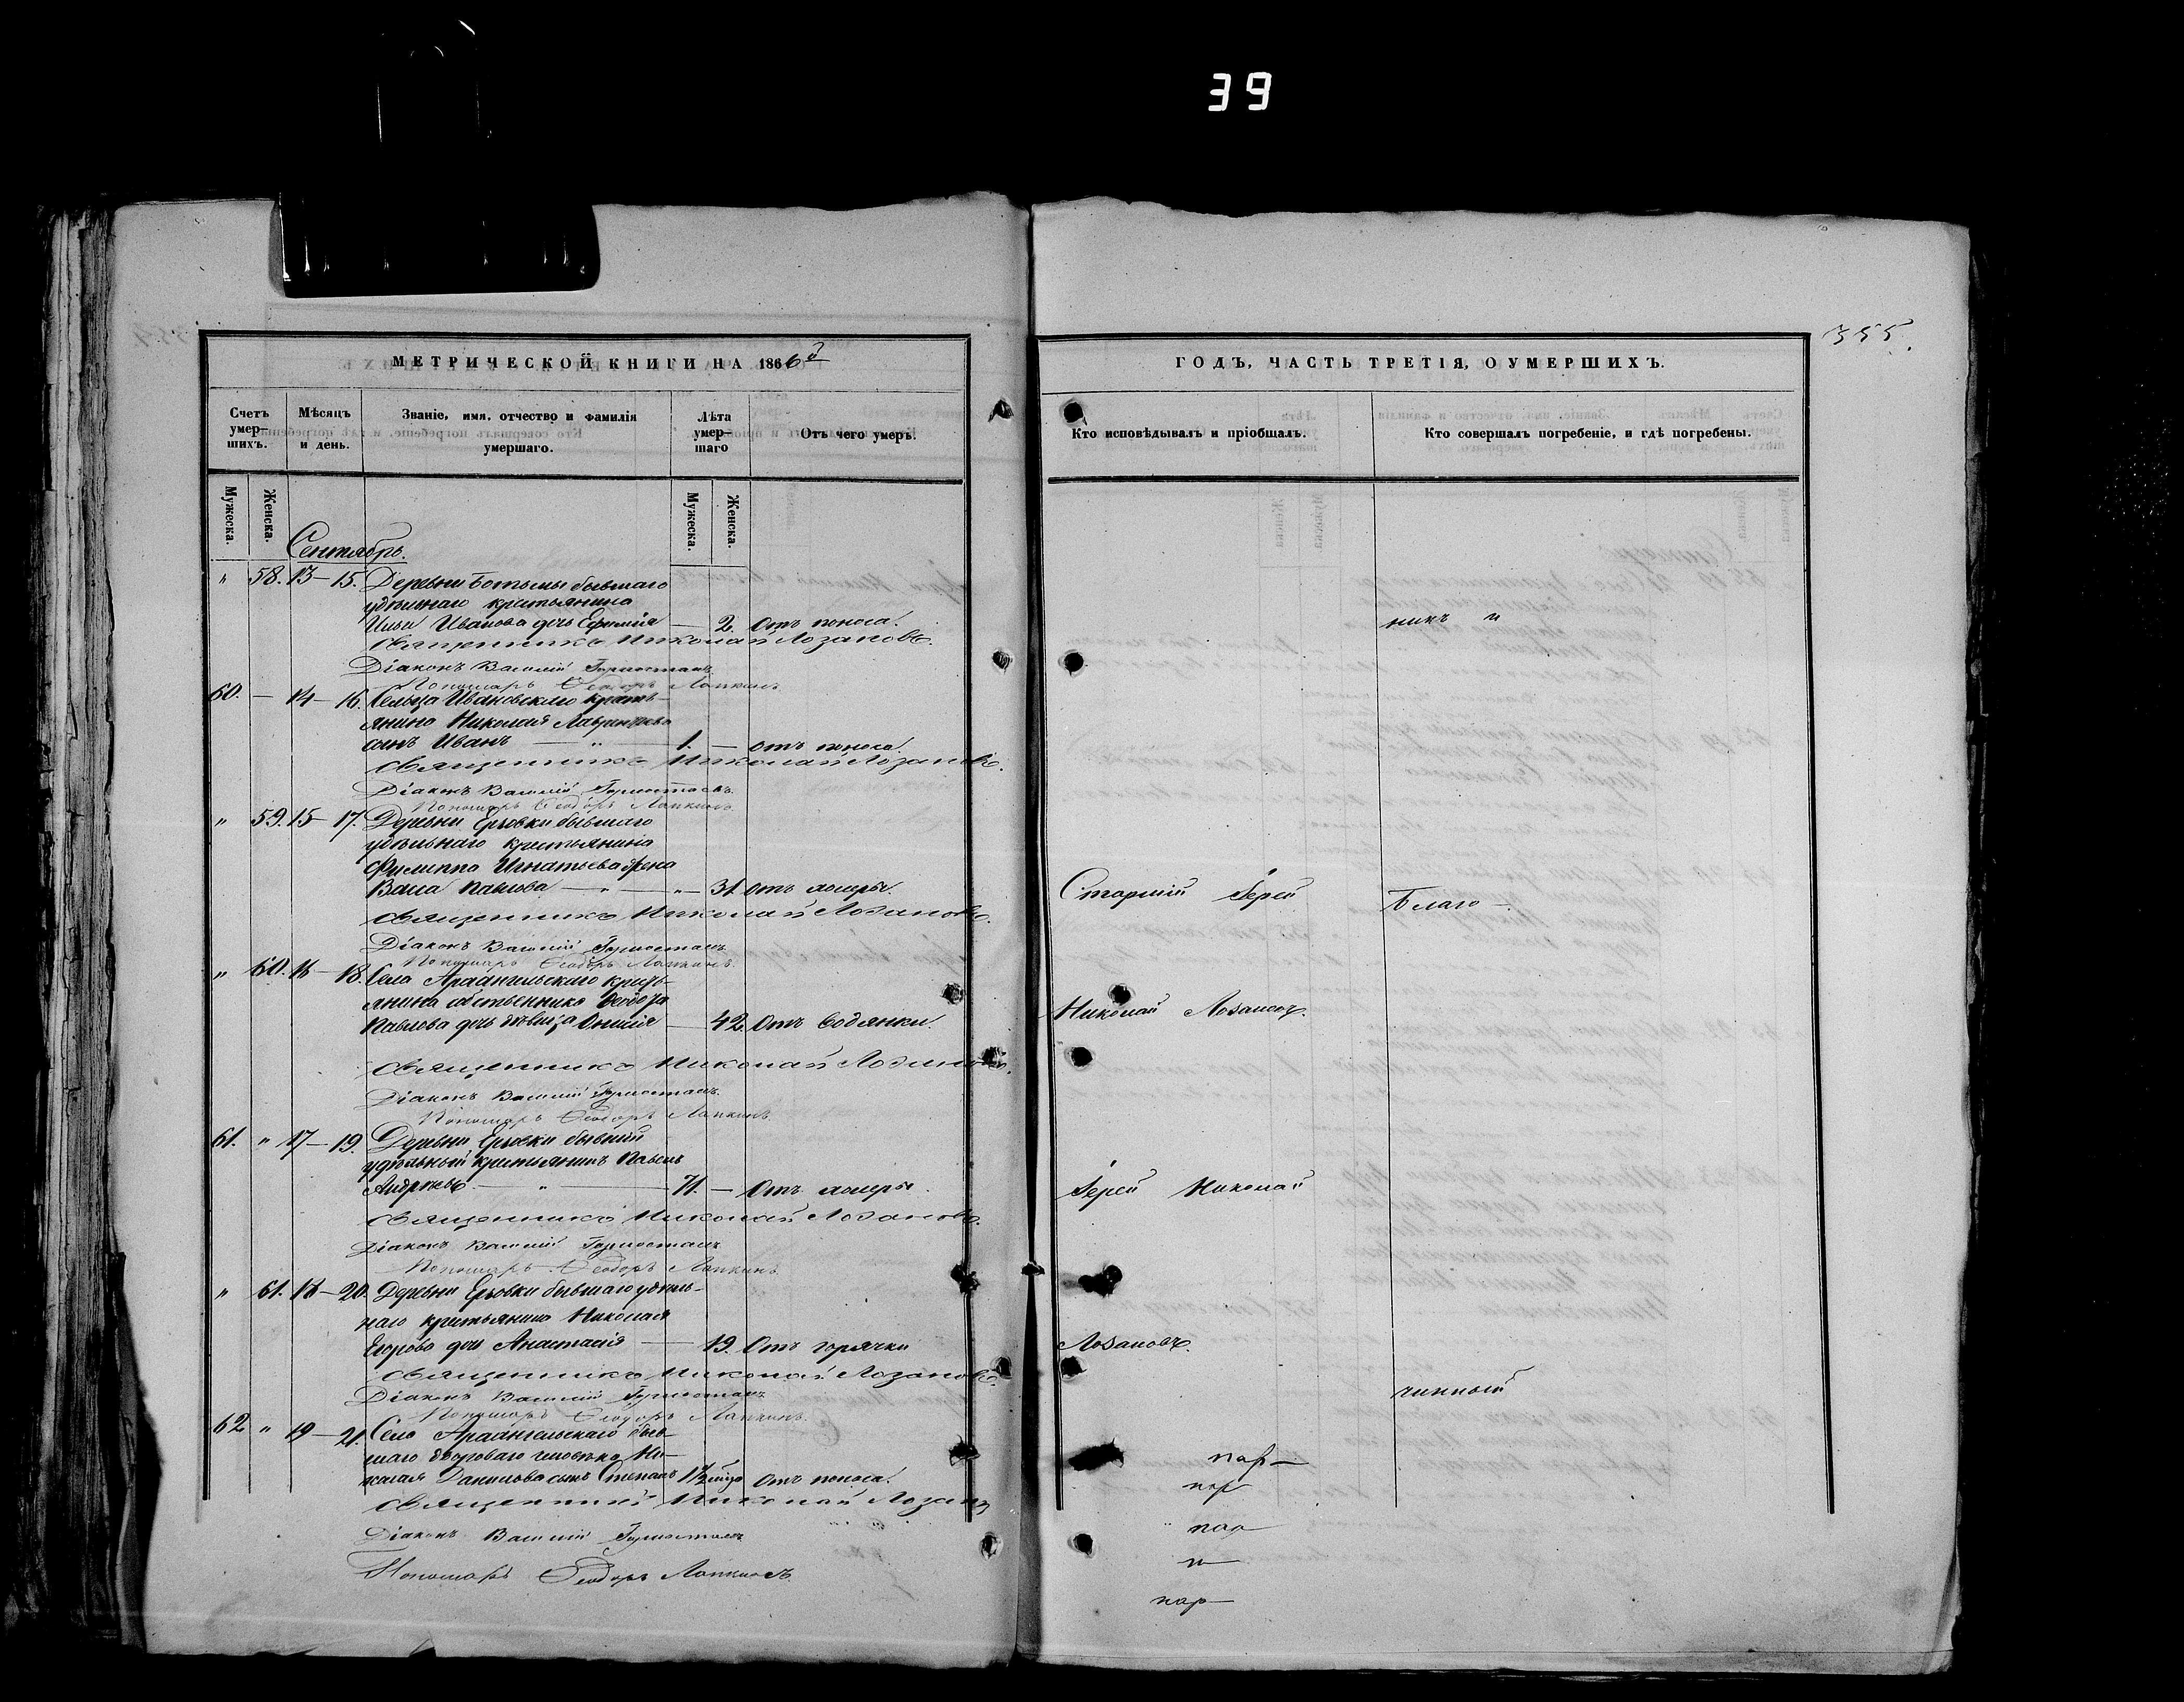 39
355.
МЕТРИЧЕСКОЙ КНИГИ НА 1866й
ГОДЪ, ЧАСТЬ ТРЕТІЯ, О УМЕРШИХЪ.
Счетъ умер-шихъ.
Мѣсяцъ и день.
Званіе, имя, отчество и фамилія умершаго.
Лѣта умер-шаго
Отъ чего умеръ.
Кто исповѣдывалъ и пріобщалъ.
Кто совершалъ погребеніе, и гдѣ погребены.
Мужеска.
Женска.
Мужеска.
Женска.
Сентябрь.
" 58. 13 – 15. Деревни Ботьмы бывшаго
удѣльнаго крестьянина
Ильи Иванова дочь Ефимія — 2. Отъ поноса.
Священникъ Николай Лозановъ.
Діаконъ Василій
Пономарь Ѳеодоръ Лапкинъ
60. — 14 – 16. Сельца Ивановскаго кресть-
янина Николая Лаврентьева
сынъ Иванъ — " — 1. — отъ поноса.
Священникъ Николай Лозановъ.
Діаконъ Василій
Пономарь Ѳеодоръ Лапкинъ
" 59. 15 – 17. Деревни Ерзовки бывшаго
удѣльнаго крестьянина
Филиппа Игнатьева жена
Васа Павлова — " — " — 31. отъ холеры.
Священникъ Николай Лозановъ.
Діаконъ Василій
Пономарь Ѳеодоръ Лапкинъ.
" 60. 16 – 18. Села Архангельскаго кресть-
янина собственника Ѳеодора
Павлова дочь дѣвица — 42. Отъ водянки.
Священникъ Николай Лозановъ.
Діаконъ Василій
Пономарь Ѳеодоръ Лапкинъ
61. " 17 – 19. Деревни Ерзовки бывшій
удѣльный крестьянинъ Павелъ
Андреевъ — " — 71. — Отъ холеры.
Священникъ Николай Лозановъ.
Діаконъ Василій
Пономарь Ѳеодоръ Лапкинъ
" 61. 18 – 20. Деревни Ерзовки бывшаго удѣль-
наго крестьянина Николая
Егорова дочь Анастасія — 19. Отъ горячки
Священникъ Николай Лозановъ.
Діаконъ Василій
Пономарь Ѳеодоръ Лапкинъ
62 " 19 – 21. Села Архангельскаго быв-
шаго двороваго человѣка Ми-
хаила Данилова сынъ Степанъ 1 1/2 отъ поноса.
Священникъ Николай Лозановъ
Діаконъ Василій
Пономарь Ѳеодоръ Лапкинъ.
никъ и
Старшій Іерей
Благо-
Николай Лозановъ.
Іерей Николай
Лозановъ.
чинный